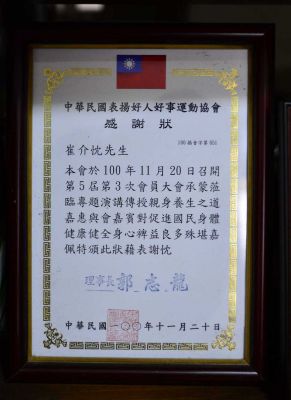 中華民國表揚好人好事運動協會
感謝狀
100揚會字第051
崔介忱先生
本會於100年11月20日召開
第5屆第3次會員大會承蒙蒞
臨專題演講傳授親身養生之道
嘉惠與會嘉賓對促進國民身體
健康健全身心裨益良多殊堪嘉
佩特頒此狀藉表謝忱
理事長 郭志龍
中華民國一〇〇年十一月二十日